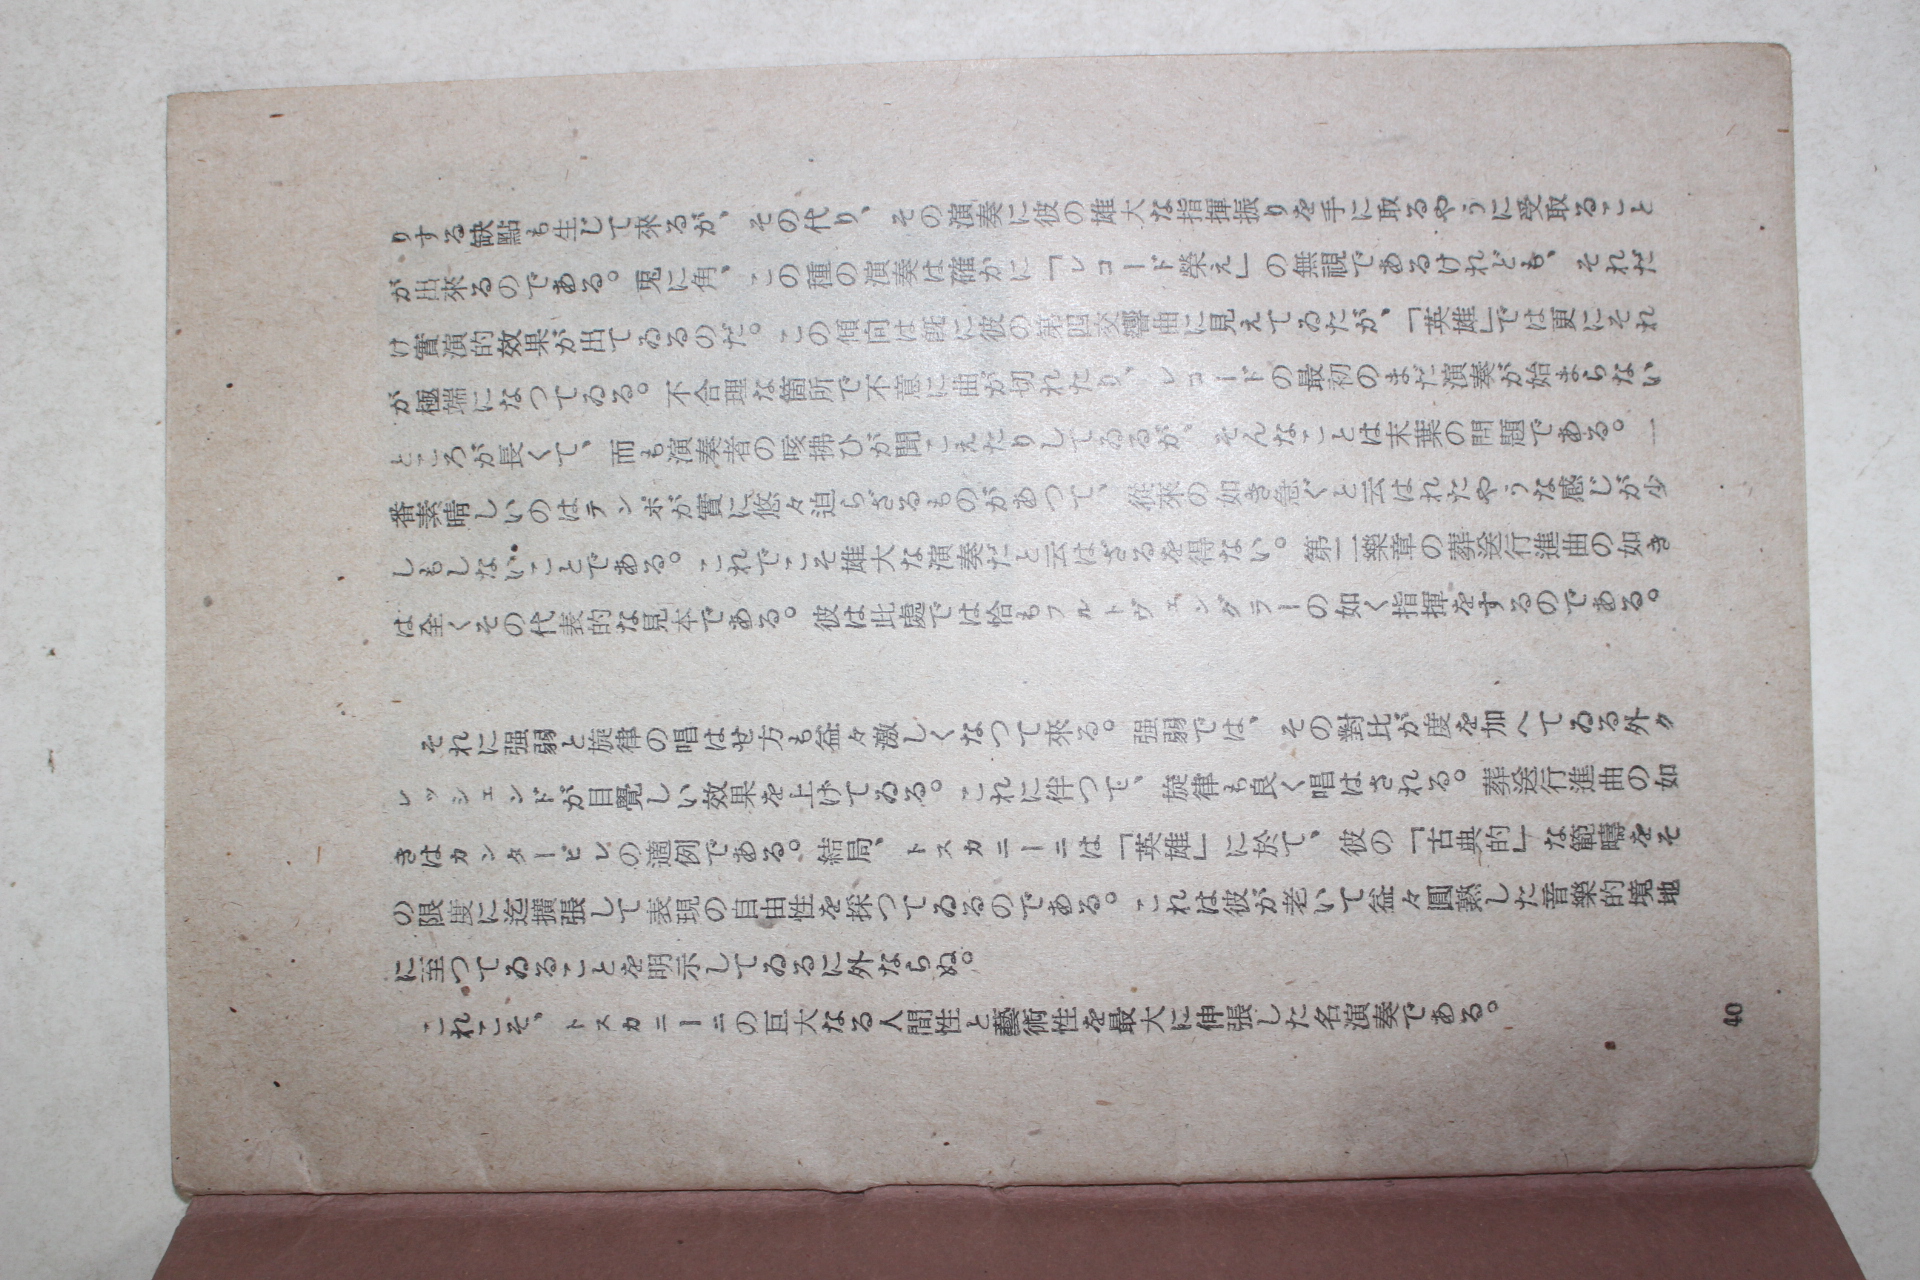 りする缺點も生じて來るが、その代り、その演奏に彼の雄大な指揮振りを手に取るやうに受取ること
が出來るのである。兎に角、この種の演奏は確かに「レコード榮え」の無視であるけれども、それだ
け實演的效果が出てゐるのだ。この傾向は既に彼の第四交響曲に見えてゐたが、「英雄」では更にそれ
が極端になつてゐる。不合理な箇所で不意に曲が切れたり、レコードの最初のまだ演奏が始まらない
ところが長くて、而も演奏者の咳拂ひが聞こえたりしてゐるが、そんなことは末葉の問題である。一
番素晴しいのはテンポが實に悠々迫らざるものがあつて、從來の如き急ぐと云はれたやうな感じが少
しもしないことである。これでこそ雄大な演奏だと云はざるを得ない。第二樂章の葬送行進曲の如き
は全くその代表的な見本である。彼は此處では恰もフルトヴェングラーの如く指揮をするのである。
それに强弱と旋律の唱はせ方も益々激しくなつて來る。强弱では、その對比が度を加へてゐる外ク
レッシェンドが目覺しい效果を上げてゐる。これに伴つて、旋律も良く唱はされる。葬送行進曲の如
きはカンタービレの適例である。結局、トスカニーニは「英雄」に於て、彼の「古典的」な範疇をそ
の限度に迄擴張して表現の自由性を採つてゐるのである。これは彼が老いて益々圓熟した音樂的境地
に至つてゐることを明示してゐるに外ならぬ。
これこそ、トスカニーニの巨大なる人間性と藝術性を最大に伸張した名演奏である。
40